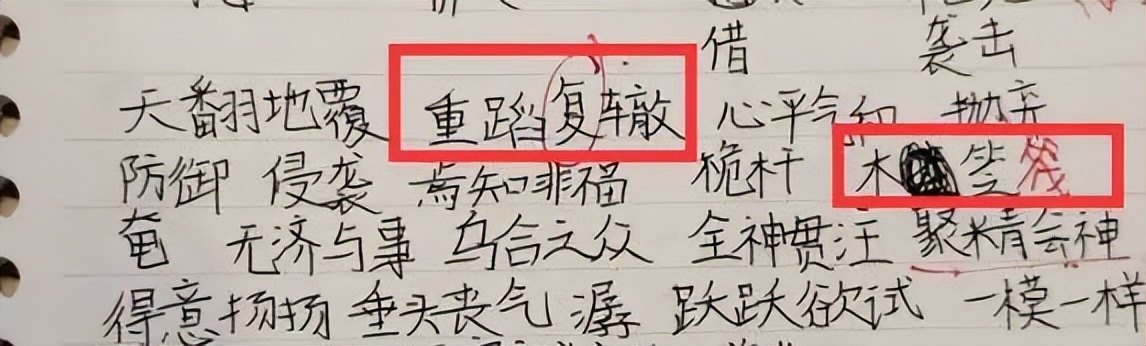 借 袭击
天翻地覆 重蹈复辙 心平气和 抛弃
防御 侵袭 焉知非福 桅杆 木 筏
奄 无济与事 乌合之众 全神贯注 聚精会神
得意扬扬 垂头丧气 潺 跃跃欲试 一模一样